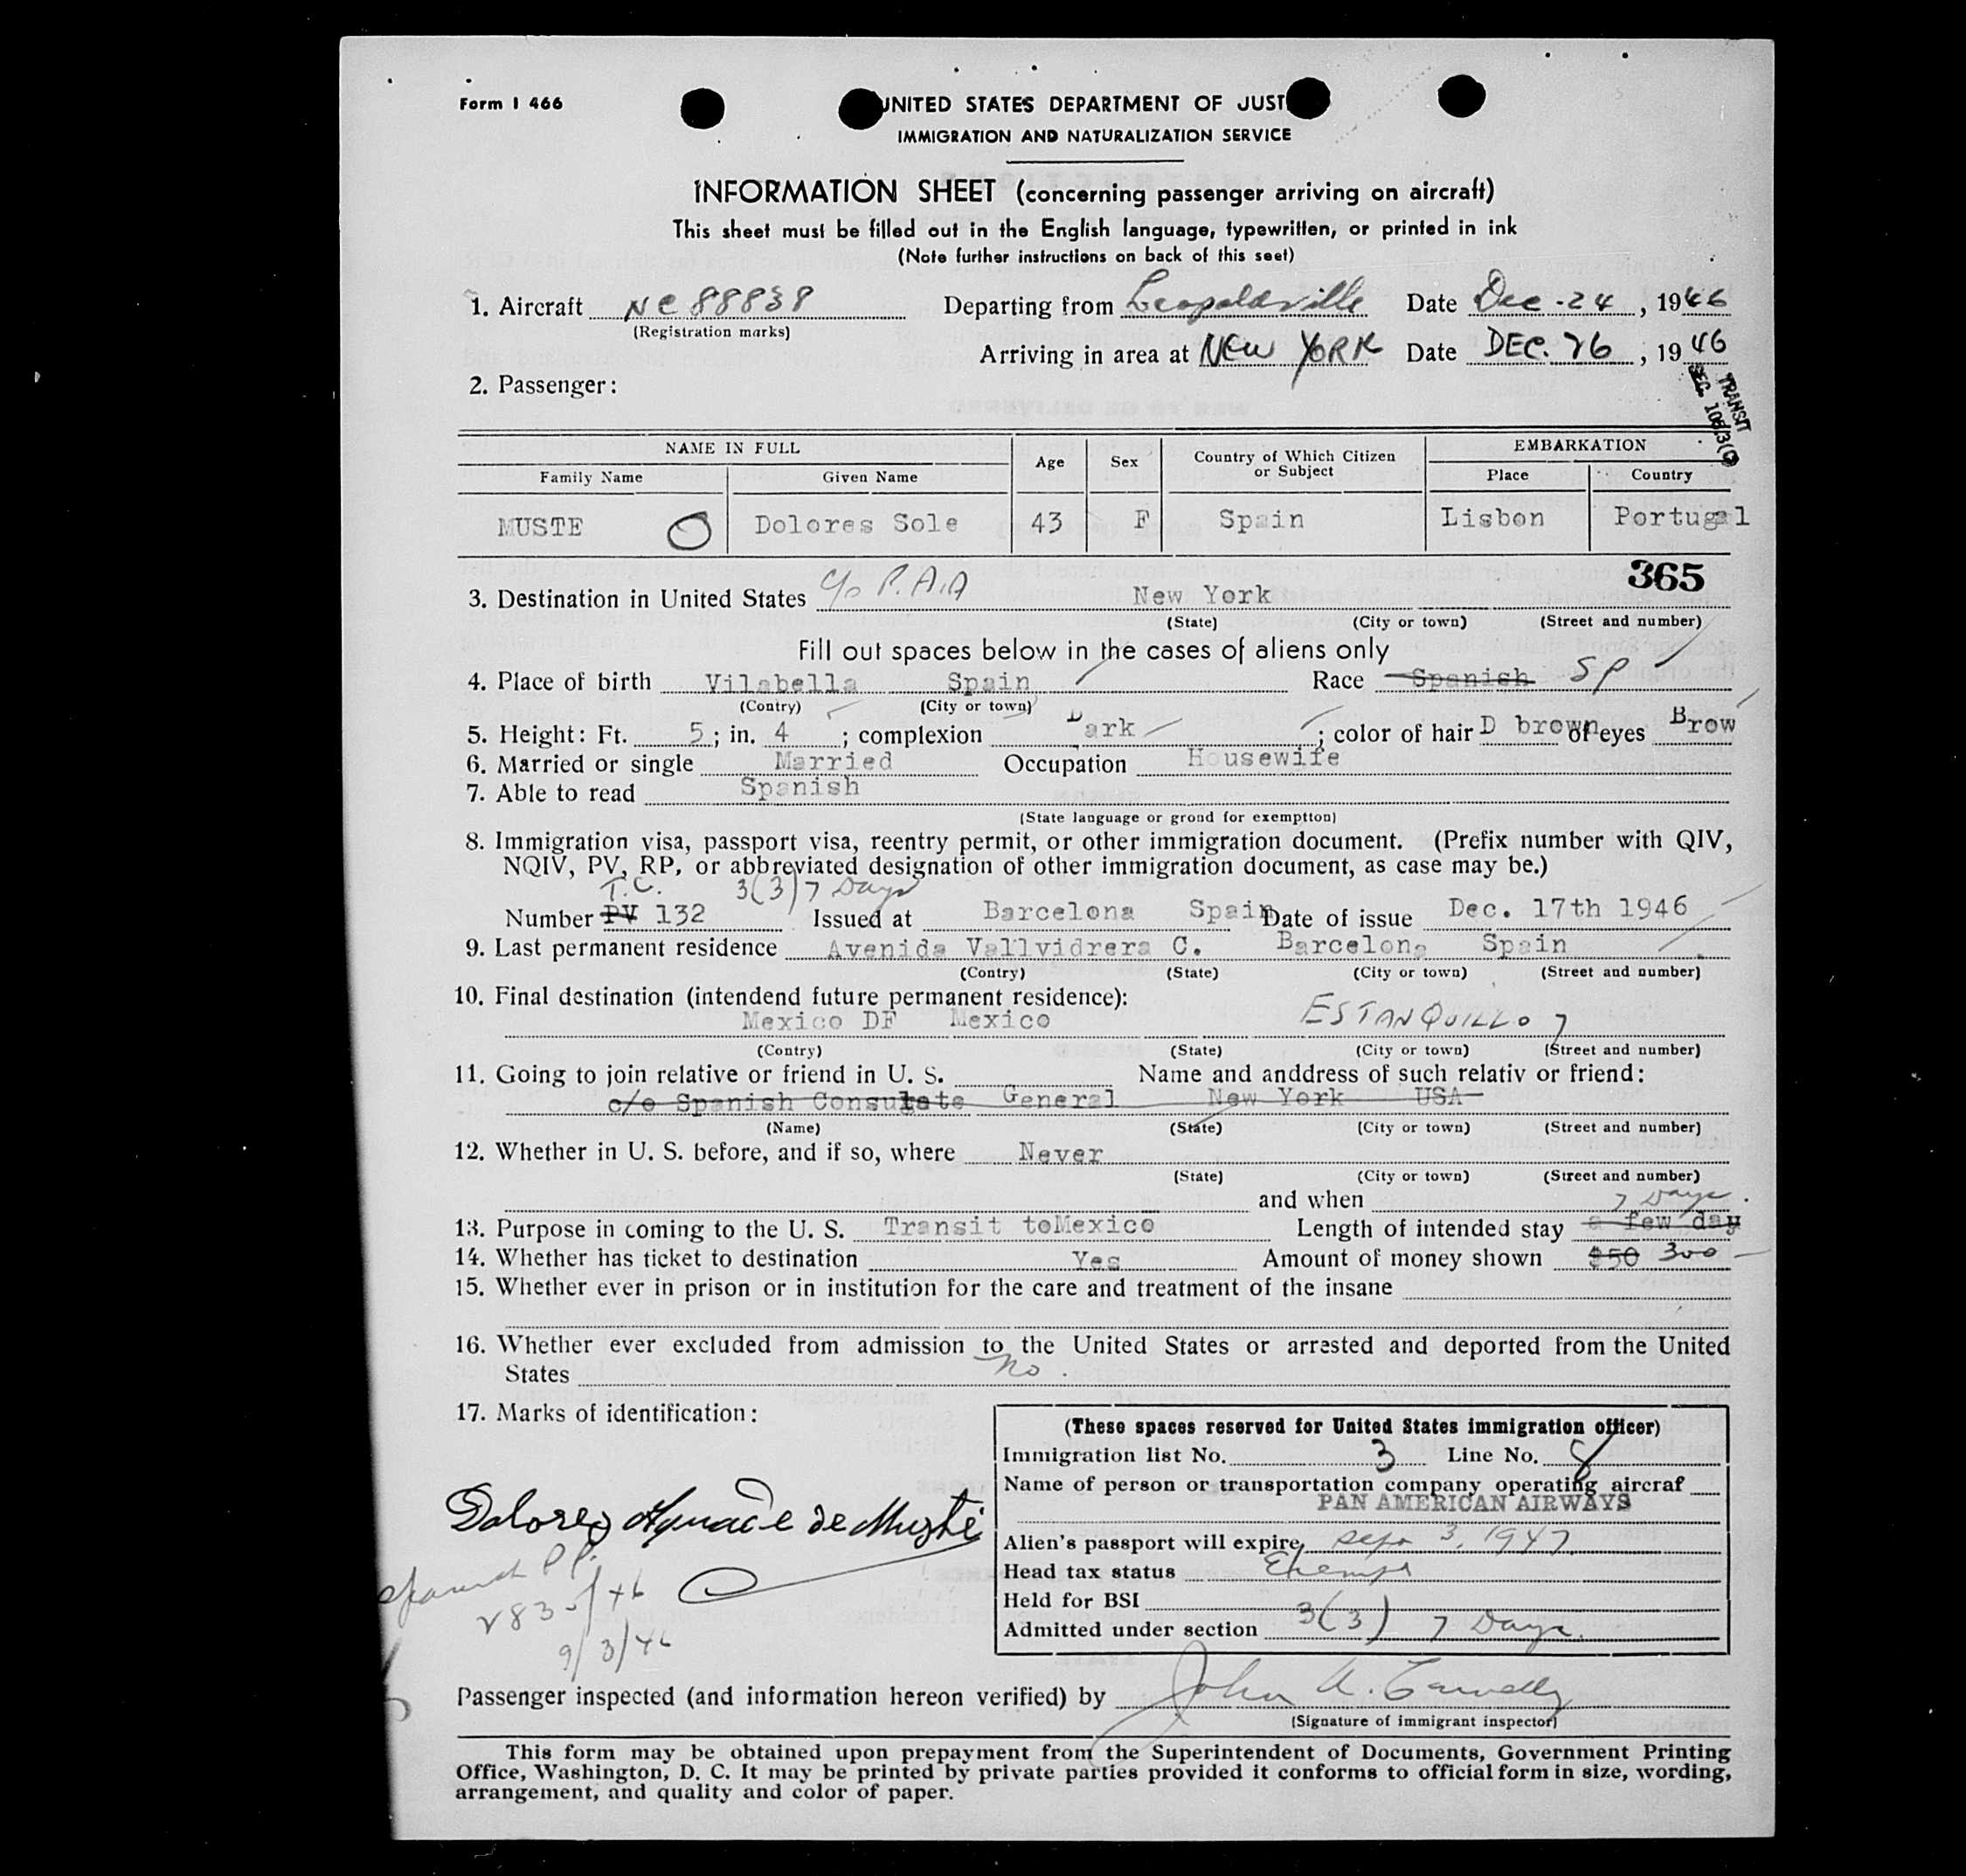 Form I 466
UNITED STATES DEPARTMENT OF JUST
IMMIGRATION AND NATURALIZATION SERVICE
INFORMATION SHEET (concerning passenger arriving on aircraft)
This sheet must be filled out in the English language, typewritten, or printed in ink
(Note further instructions on back of this seet)
1. Aircraft NC 88838 Departing from Leopoldville Date Dec-24, 1946
(Registration marks)
Arriving in area at NEW YORK Date DEC. 26, 1946
2. Passenger:
TRANSIT
SEC.
NAME IN FULL Age Sex Country of Which Citizen or Subject EMBARKATION
Family Name Given Name Place Country
MUSTE Dolores Sole 43 F Spain Lisbon Portugal
365
3. Destination in United States c/o P.A.A New York
(State) (City or town) (Street and number)
Fill out spaces below in the cases of aliens only
4. Place of birth Vilabella Spain Race Spanish SP
(Contry) (City or town)
5. Height: Ft. 5; in. 4; complexion Dark; color of hair D brown of eyes Brow
6. Married or single Married Occupation Housewife
7. Able to read Spanish
(State language or grond for exemptton)
8. Immigration visa, passport visa, reentry permit, or other immigration document. (Prefix number with QIV,
NQIV, PV, RP, or abbreviated designation of other immigration document, as case may be.)
T.C. 3(3) 7 Days
Number PV 132 Issued at Barcelona Spain Date of issue Dec. 17th 1946
9. Last permanent residence Avenida Vallvidrera C. Barcelona Spain
(Contry) (State) (City or town) (Street and number)
10. Final destination (intendend future permanent residence):
Mexico DF Mexico ESTANQUILLO 7
(Contry) (State) (City or town) (Street and number)
11. Going to join relative or friend in U. S. Name and anddress of such relativ or friend:
c/o Spanish Consulate General New York USA
(Name) (State) (City or town) (Street and number)
12. Whether in U. S. before, and if so, where Never
(State) (City or town) (Street and number)
and when
7 Days.
13. Purpose in coming to the U. S. Transit toMexico Length of intended stay a few day
14. Whether has ticket to destination Yes Amount of money shown $50 300
15. Whether ever in prison or in institution for the care and treatment of the insane
16. Whether ever excluded from admission to the United States or arrested and deported from the United
States no.
17. Marks of identification:
(These spaces reserved for United States immigration officer)
Immigration list No. 3 Line No. 8
Name of person or transportation company operating aircraf
PAN AMERICAN AIRWAYS
Dolores de Musté
Alien's passport will expire Sept 3, 1947
Spanish PP.
Head tax status Exempt
Held for BSI
9/3/46
Admitted under section 3(3) 7 Days.
Passenger inspected (and information hereon verified) by John
(Signature of immigrant inspector)
This form may be obtained upon prepayment from the Superintendent of Documents, Government Printing
Office, Washington, D. C. It may be printed by private parties provided it conforms to official form in size, wording,
arrangement, and quality and color of paper.